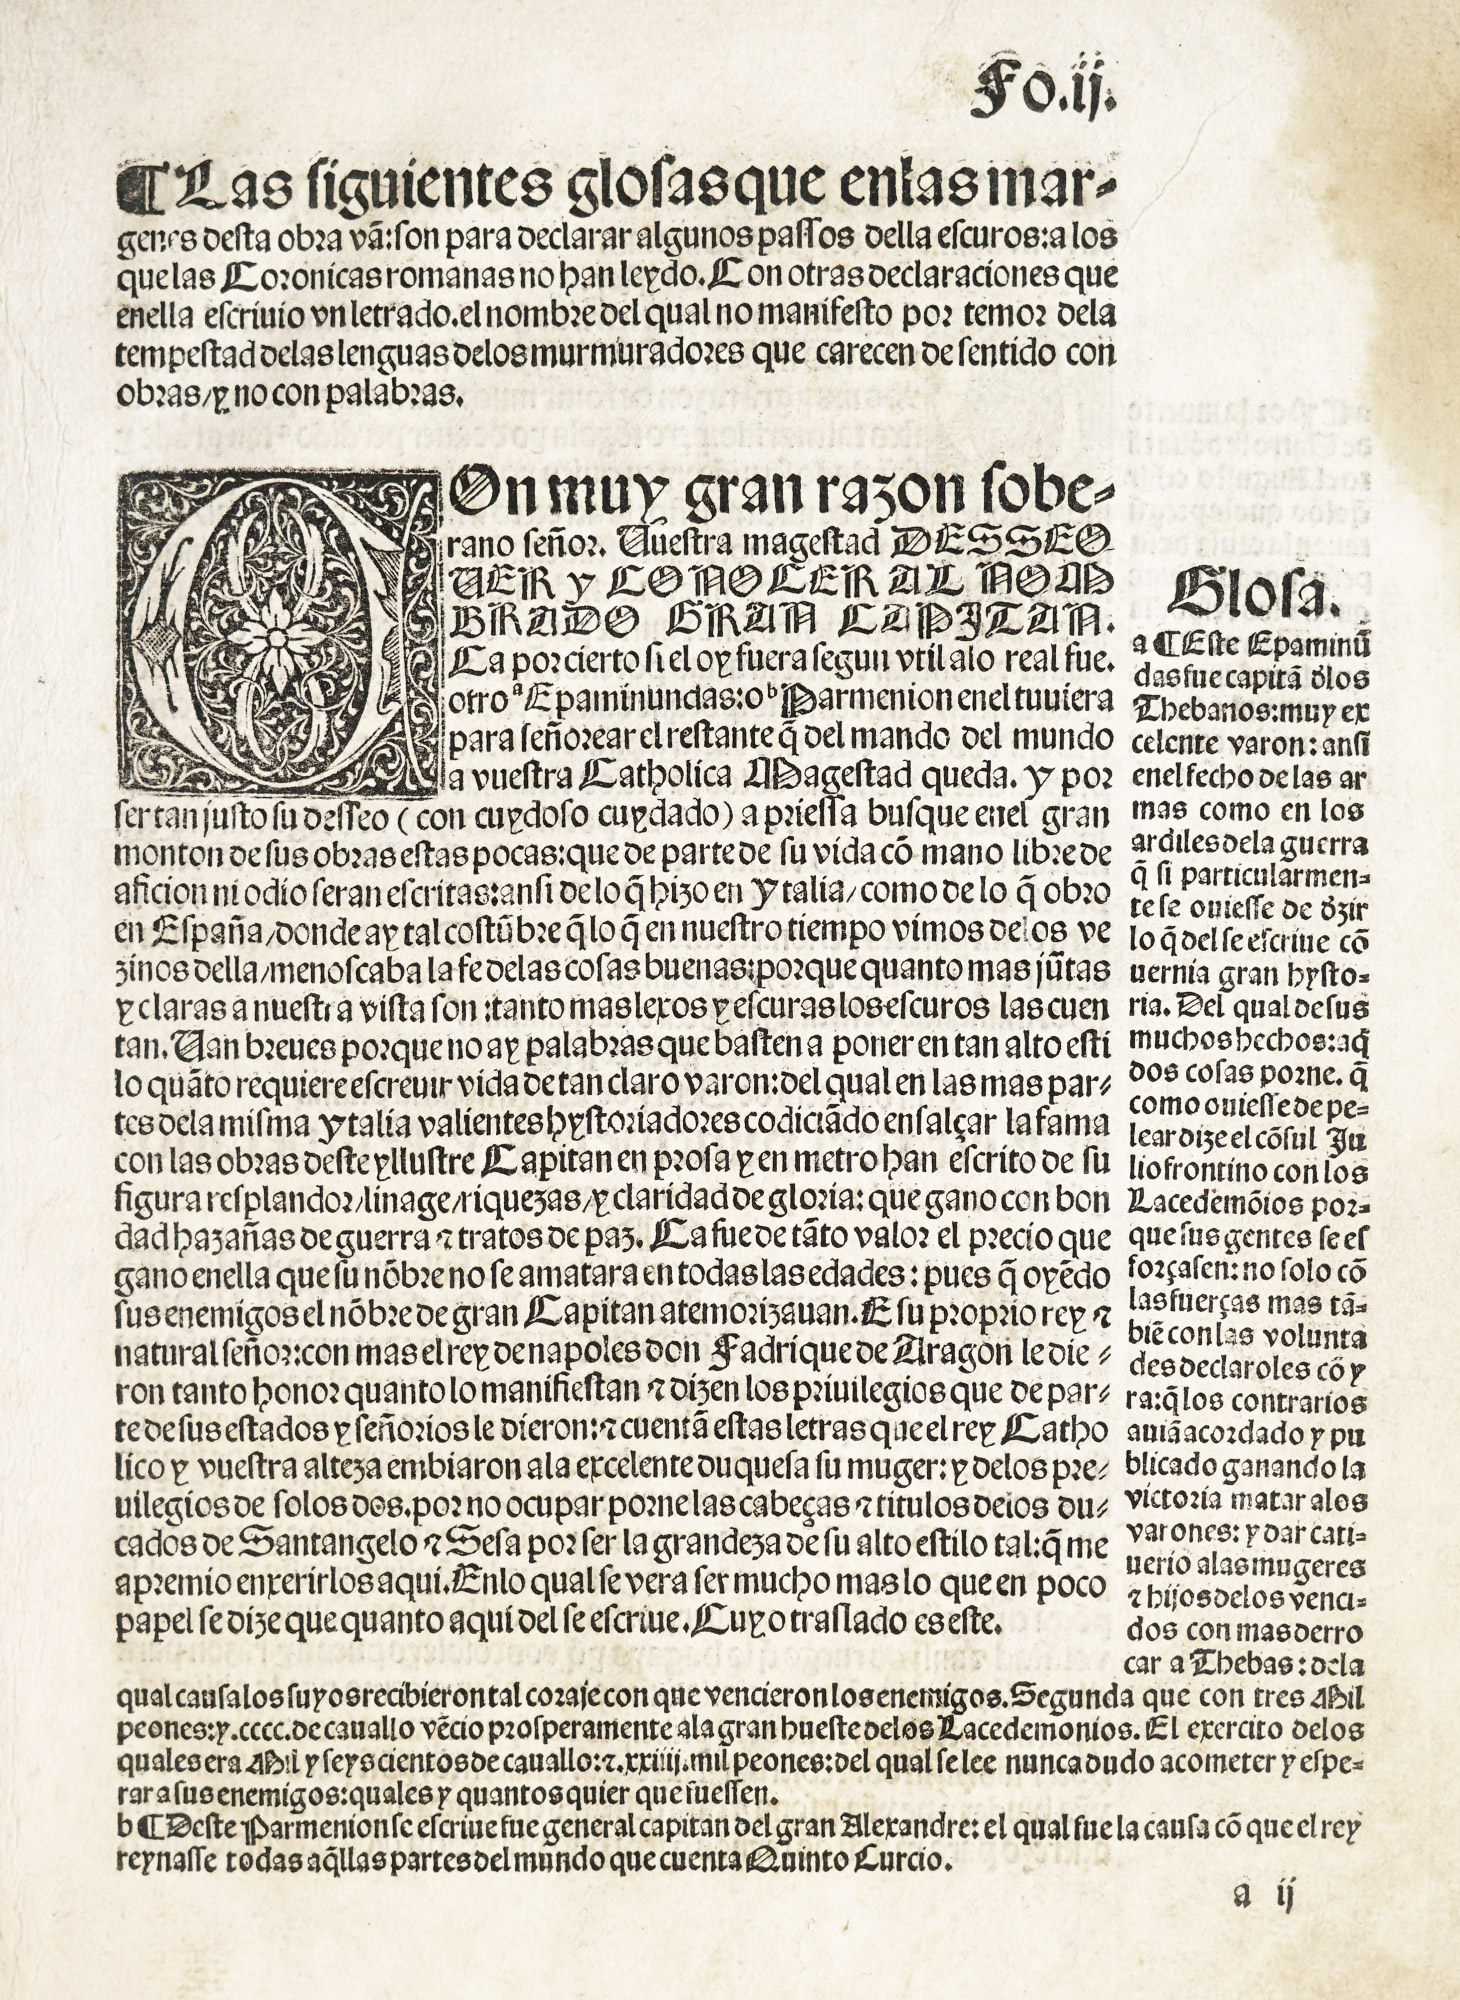 Fo.ij.
¶ Las siguientes glosas que enlas mar-
genes desta obra vã: son para declarar algunos passos della escuros: a los
que las Coronicas romanas no han leydo. Con otras declaraciones que
enella escriuio vn letrado. el nombre del qual no manifesto por temor dela
tempestad delas lenguas delos murmuradores que carecen de sentido con
obras/ y no con palabras.
COn muy gran razon sobe-
rano señor. Uuestra magestad DESSEO
UER Y CONOCER AL NOM
BRADO GRAN CAPITAN.
Ca por cierto si el oy fuera segun vtil alo real fue.
otro ª Epaminundas: o ᵇ Parmenion enel tuuiera
para señorear el restante q̃ del mando del mundo
a vuestra Catholica Magestad queda. Y por
ser tan justo su desseo (con cuydoso cuydado) a priessa busque enel gran
monton de sus obras estas pocas: que de parte de su vida cõ mano libre de
aficion ni odio seran escritas: ansi de lo q̃ hizo en Ytalia/ como de lo q̃ obro
en España/ donde ay tal costũbre q̃ lo q̃ en nuestro tiempo vimos delos ve
zinos della/ menoscaba la fe delas cosas buenas: porque quanto mas jũtas
y claras a nuestra vista son: tanto mas lexos y escuras los escuros las cuen
tan. Uan breues porque no ay palabras que basten a poner en tan alto esti
lo quãto requiere escreuir vida de tan claro varon: del qual en las mas par-
tes dela misma Ytalia valientes hystoriadores codiciãdo ensalçar la fama
con las obras deste yllustre Capitan en prosa y en metro han escrito de su
figura resplandor/ linage/ riquezas/ y claridad de gloria: que gano con bon
dad hazañas de guerra ⁊ tratos de paz. Ca fue de tãto valor el precio que
gano enella que su nõbre no se amatara en todas las edades: pues q̃ oyẽdo
sus enemigos el nõbre de gran Capitan atemorizauan. E su proprio rey ⁊
natural señor: con mas el rey de napoles don Fadrique de Aragon le die-
ron tanto honor quanto lo manifiestan ⁊ dizen los priuilegios que de par-
te de sus estados y señorios le dieron: ⁊ cuentã estas letras que el rey Catho
lico y vuestra alteza embiaron ala excelente duquesa su muger: y delos pre-
uilegios de solos dos. por no ocupar porne las cabeças ⁊ titulos delos du-
cados de Santangelo ⁊ Sesa por ser la grandeza de su alto estilo tal: q̃ me
apremio enxerirlos aqui. Enlo qual se vera ser mucho mas lo que en poco
papel se dize que quanto aqui del se escriue. Cuyo traslado es este.
Glosa.
a ¶ Este Epaminũ
das fue capitã d̃los
Thebanos: muy ex
celente varon: ansi
enel fecho de las ar
mas como en los
ardiles dela guerra
q̃ si particularmen-
te se ouiesse de d̃zir
lo q̃ del se escriue cõ
uernia gran hysto-
ria. Del qual de sus
muchos hechos: aq̃
dos cosas porne. q̃
como ouiesse de pe-
lear dize el cõsul Ju
lio frontino con los
Lacedemõios por-
que sus gentes se es
forçasen: no solo cõ
las fuerças mas tã-
biẽ con las volunta
des declaroles cõ y
ra: q̃ los contrarios
auiã acordado y pu
blicado ganando la
victoria matar alos
varones: y dar cati-
uerio alas mugeres
⁊ hijos delos venci-
dos con mas derro
car a Thebas: dela
qual causa los suyos recibieron tal coraje con que vencieron los enemigos. Segunda que con tres Mil
peones: y .cccc. de cauallo vẽcio prosperamente ala gran hueste delos Lacedemonios. El exercito delos
quales era Mil y seyscientos de cauallo: ⁊ .xxiiij. mil peones: del qual se lee nunca dudo acometer y espe-
rar a sus enemigos: quales y quantos quier que fuessen.
b ¶ Deste Parmenion se escriue fue general capitan del gran Alexandre: el qual fue la causa cõ que el rey
reynasse todas aq̃llas partes del mundo que cuenta Quinto Curcio.
a ij